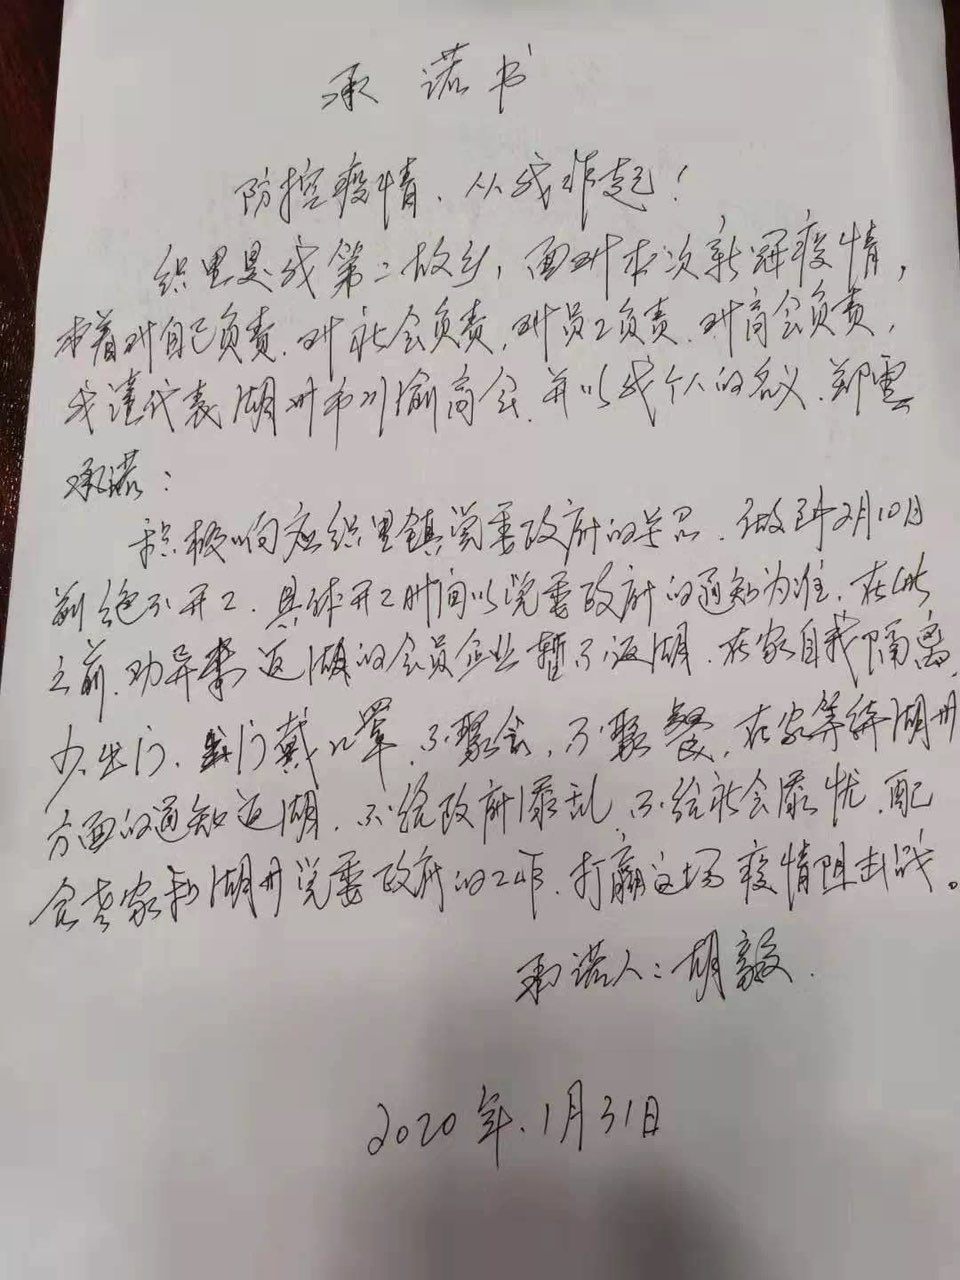 承诺书
防控疫情、从我作起！
织里是我第二故乡，面对本次新冠疫情，
本着对自己负责、对社会负责，对员工负责、对商会负责，
我谨代表湖州市川渝商会、并以我个人的名义、郑重
承诺：
积极响应织里镇党委政府的号召、做到2月10日
前绝不开工、具体开工时间以党委政府的通知为准、在此
之前、劝导 返湖的会员企业暂不返湖、在家自我隔离、
少出门、出门戴口罩、不聚会、不聚餐、在家等待湖州
方面的通知返湖、不给政府添乱、不给社会添忧、配
合老家和湖州党委政府的工作、打赢这场疫情阻击战。
承诺人：胡毅
2020年、1月31日